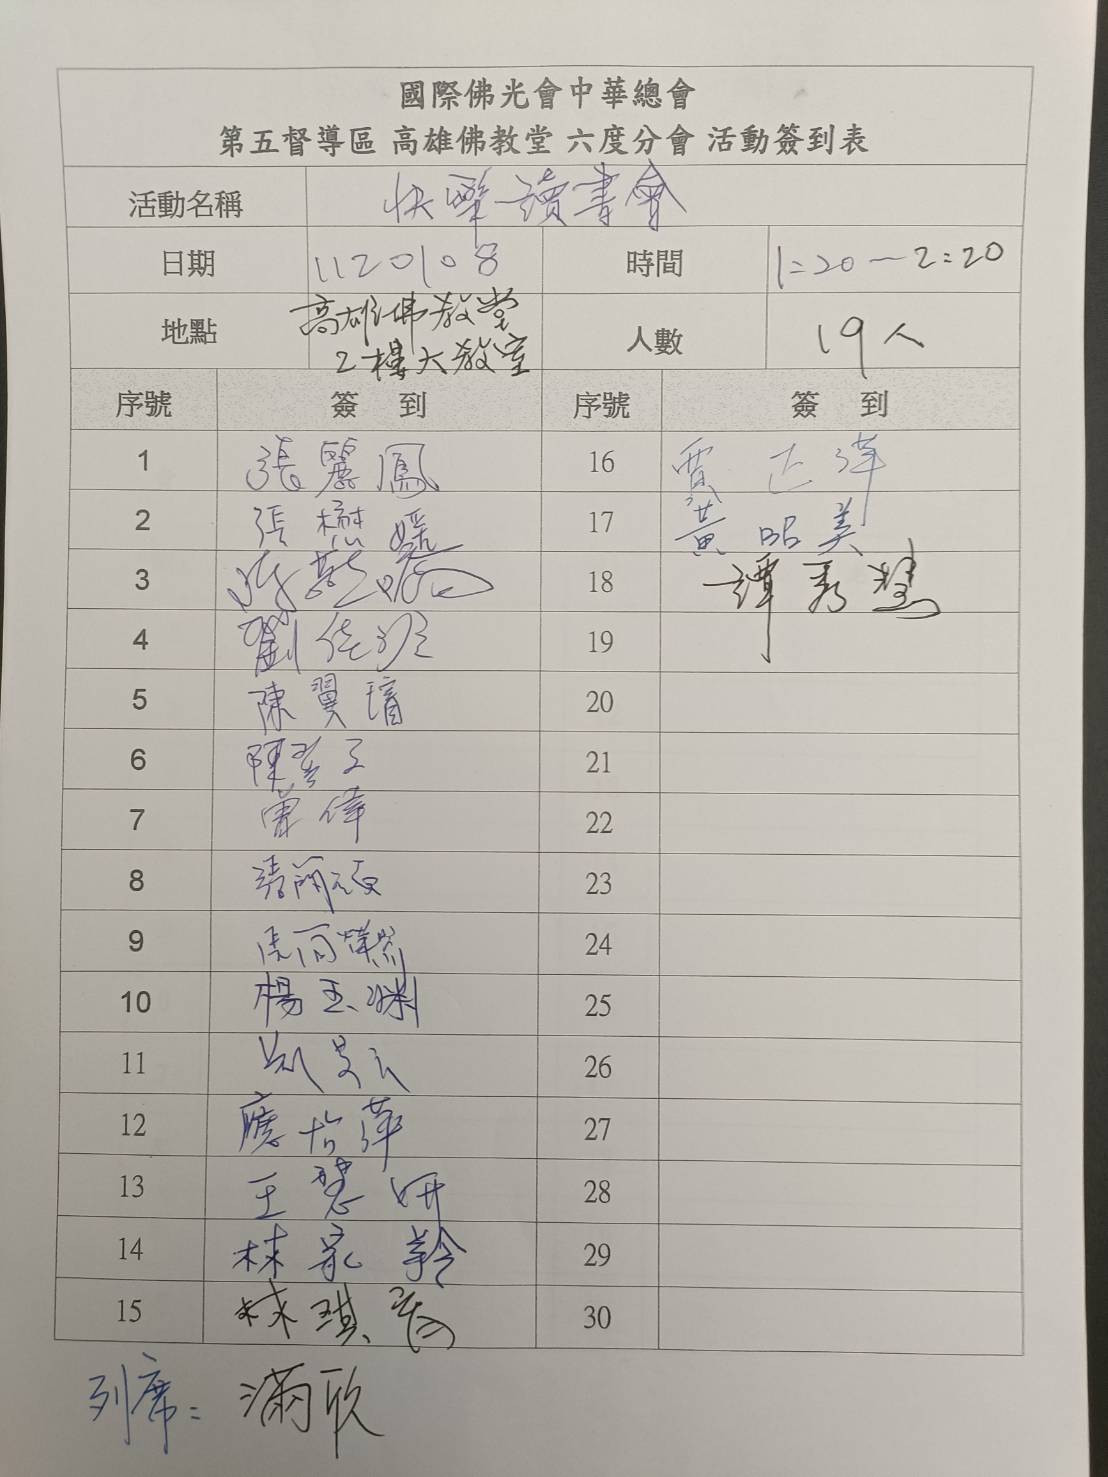 國際佛光會中華總會
第五督導區 高雄佛教堂 六度分會 活動簽到表
活動名稱 快樂讀書會
日期 1120108 時間 1:20~2:20
地點 高雄佛教堂 2樓大教室 人數 19人
序號 簽到 序號 簽到
1 張麗鳳 16 賈 萍
2 張懋媛 17 黃昭美
3 18 譚秀慧
4 劉佳 19
5 陳翼璿 20
6 陳 子 21
7 曾偉 22
8 23
9 24
10 楊玉渊 25
11 26
12 應怡萍 27
13 王慧妍 28
14 林家羚 29
15 林琪 30
列席: 滿欣